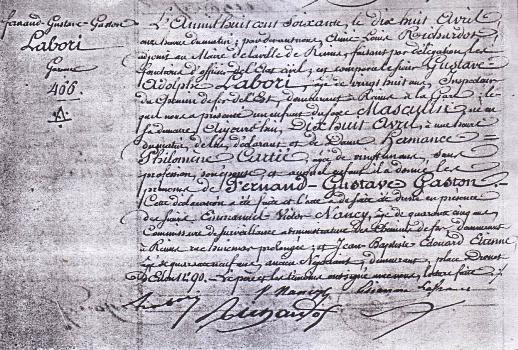 Fernand-Gustave-Gaston
Labori
Garçon
466
A.
L'An mil huit cent soixante, le dix huit Avril
onze heures du matin; pardevant nous Anne-Louis Richardot,
adjoint au Maire de la ville de Reims, faisant par délégation, les
fonctions d'officier de l'état civil, est comparu le sieur Gustave
Adolphe Labori, âgé de vingt huit ans, Inspecteur
du Chemin de fer de l'Est, demeurant à Reims à la Gare; le
quel nous a présenté un enfant du sexe Masculin né en
sa demeure Aujourd'hui, Dix huit Avril à une heure
du matin, de lui, déclarant et de Dame Hermance =
Philomène Cartié âgée de vingt un ans, sans
profession, son épouse et auquel enfant il a donné les
prénoms de Fernand-Gustave Gaston.-
Cette déclaration a été faite et l'acte de fait et dressé en présence
des sieurs Emmanuel Victor Nancy, âgé de quarante cinq ans
Commissaire de surveillance administrative des Chemins de fer, demeurant
à Reims rue prolongée; et Jean-Baptiste Edouard Etienne
âgé de quarante neuf ans, ancien Négociant, demeurant, place Drouet
d'Erlon 90. Le père et les témoins ont signé avec nous, lecture faite
V. Nancy
Richardot